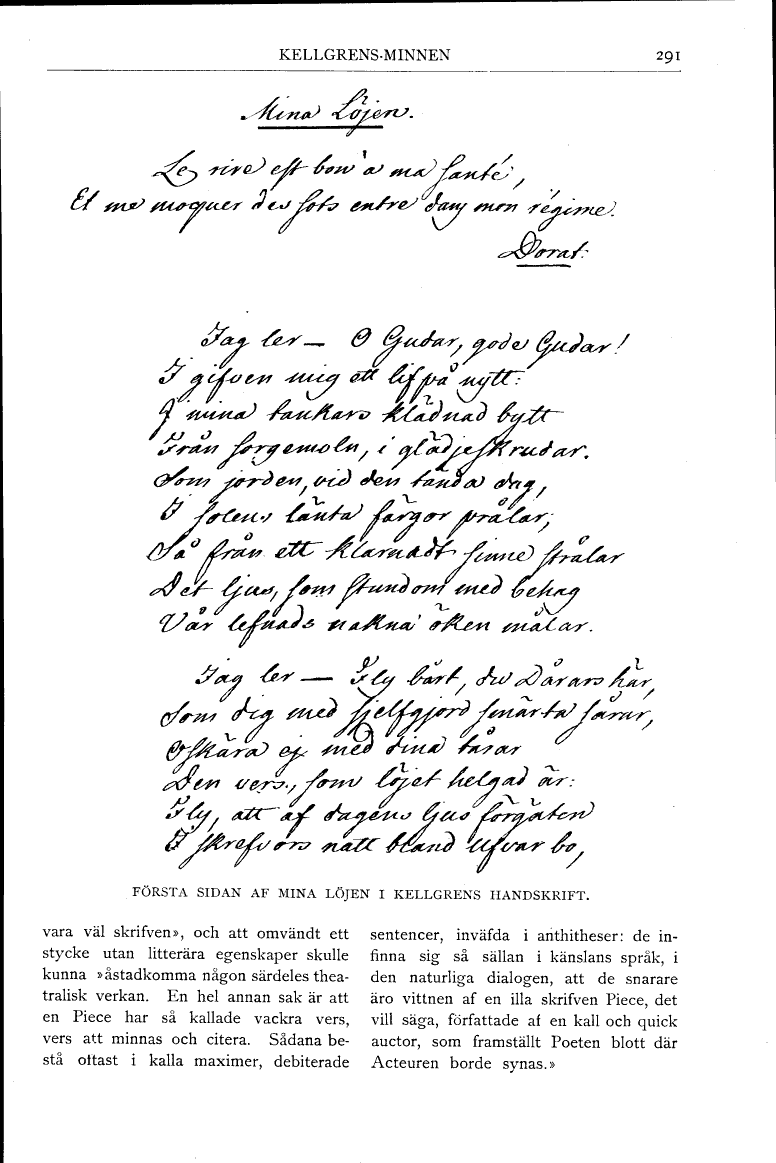 KELLGRENS-MINNEN 291
Mina Löjen.
Le rire est bon a ma santé,
Et me moquer des sots entre dans mon régime.
Dorat.
Jag ler — O Gudar, gode Gudar!
I gifven mig ett lif på nytt:
I mina tankars klädnad bytt
Från sorgemoln, i glädjeskrudar.
Som jorden, vid den tända dag,
I solens länta färgor prålar,
Så från ett klarnadt sinne strålar
Det ljus, som stundom med behag
Vår lefnads nakna öken målar.
Jag ler — Fly bårt, du Dårars här,
Som dig med sjelfgjord smärta sårar,
Oskära ej med dina tårar
Den vers, som löjet helgad är:
Fly, att af dagens ljus förgäten
I skrefvors natt bland ufvar bo,
FÖRSTA SIDAN AF MINA LÖJEN I KELLGRENS HANDSKRIFT.
vara väl skrifven», och att omvändt ett
stycke utan litterära egenskaper skulle
kunna »åstadkomma någon särdeles thea-
tralisk verkan. En hel annan sak är att
en Piece har så kallade vackra vers,
vers att minnas och citera. Sådana be-
stå oftast i kalla maximer, debiterade
sentencer, inväfda i anthitheser: de in-
finna sig så sällan i känslans språk, i
den naturliga dialogen, att de snarare
äro vittnen af en illa skrifven Piece, det
vill säga, författade af en kall och quick
auctor, som framställt Poeten blott där
Acteuren borde synas.»